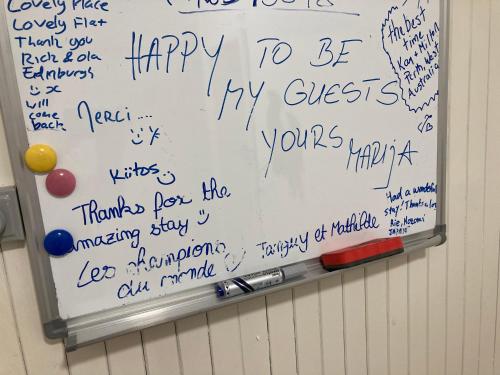 Lovely Place
Lovely Flat
Thank you
Rick & Ola
Edinburgh
x
will
come
back
HAPPY TO BE
MY GUESTS
YOURS MARIJA
the best
time
Kay +
Perth, West
Australia
Merci....
Kiitos
Thanks for the
amazing stay
Les champions
du monde
Tanguy et Mathilde
Had a wonderful
stay! Thanks a lot
Rie, Nozomi
JAPAN